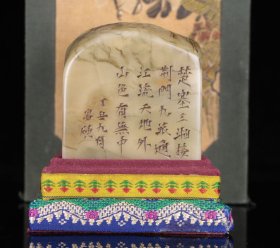 楚塞三湘接
荆門九派通
江流天地外
山色有無中
丑九月